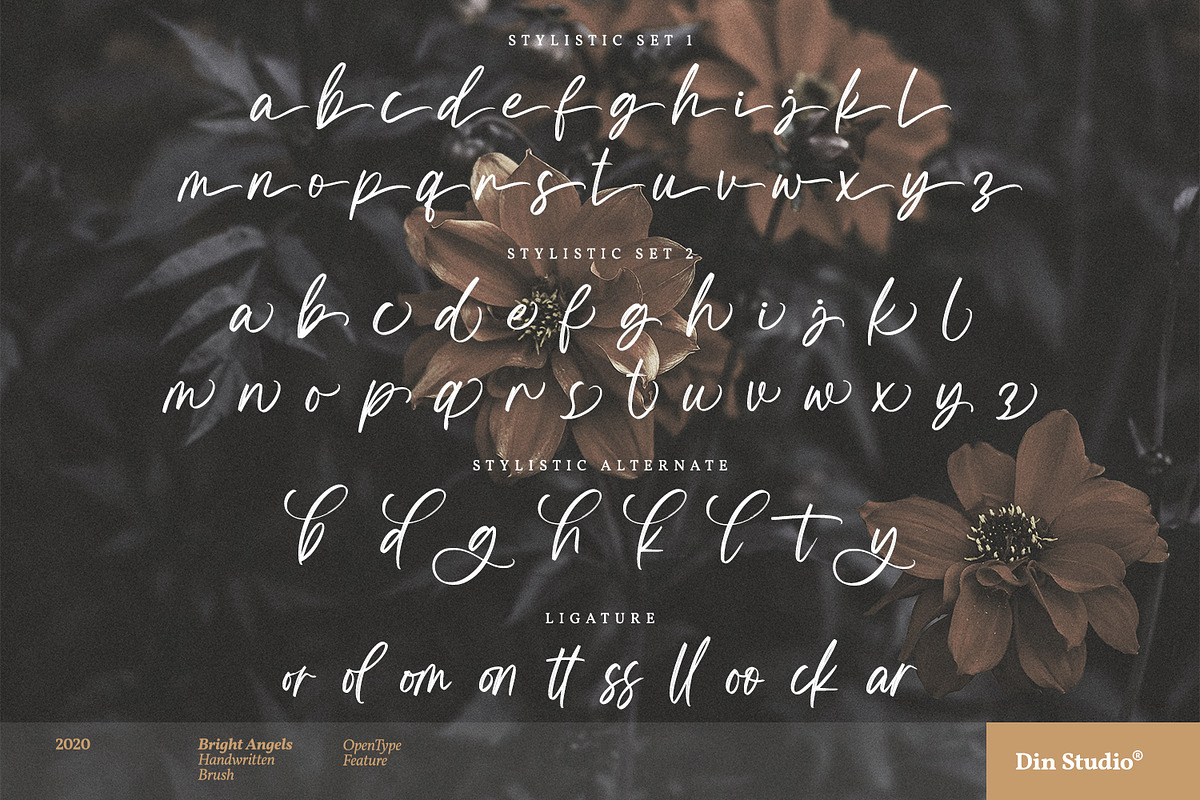 STYLISTIC SET 1
a b c d e f g h i j k l
m n o p q r s t u v w x y z
STYLISTIC SET 2
a b c d e f g h i j k l
m n o p q r s t u v w x y z
STYLISTIC ALTERNATE
b d g h k l t y
LIGATURE
or ol om on tt ss ll oo ck ar
2020
Bright Angels
Handwritten
Brush
OpenType
Feature
Din Studio®